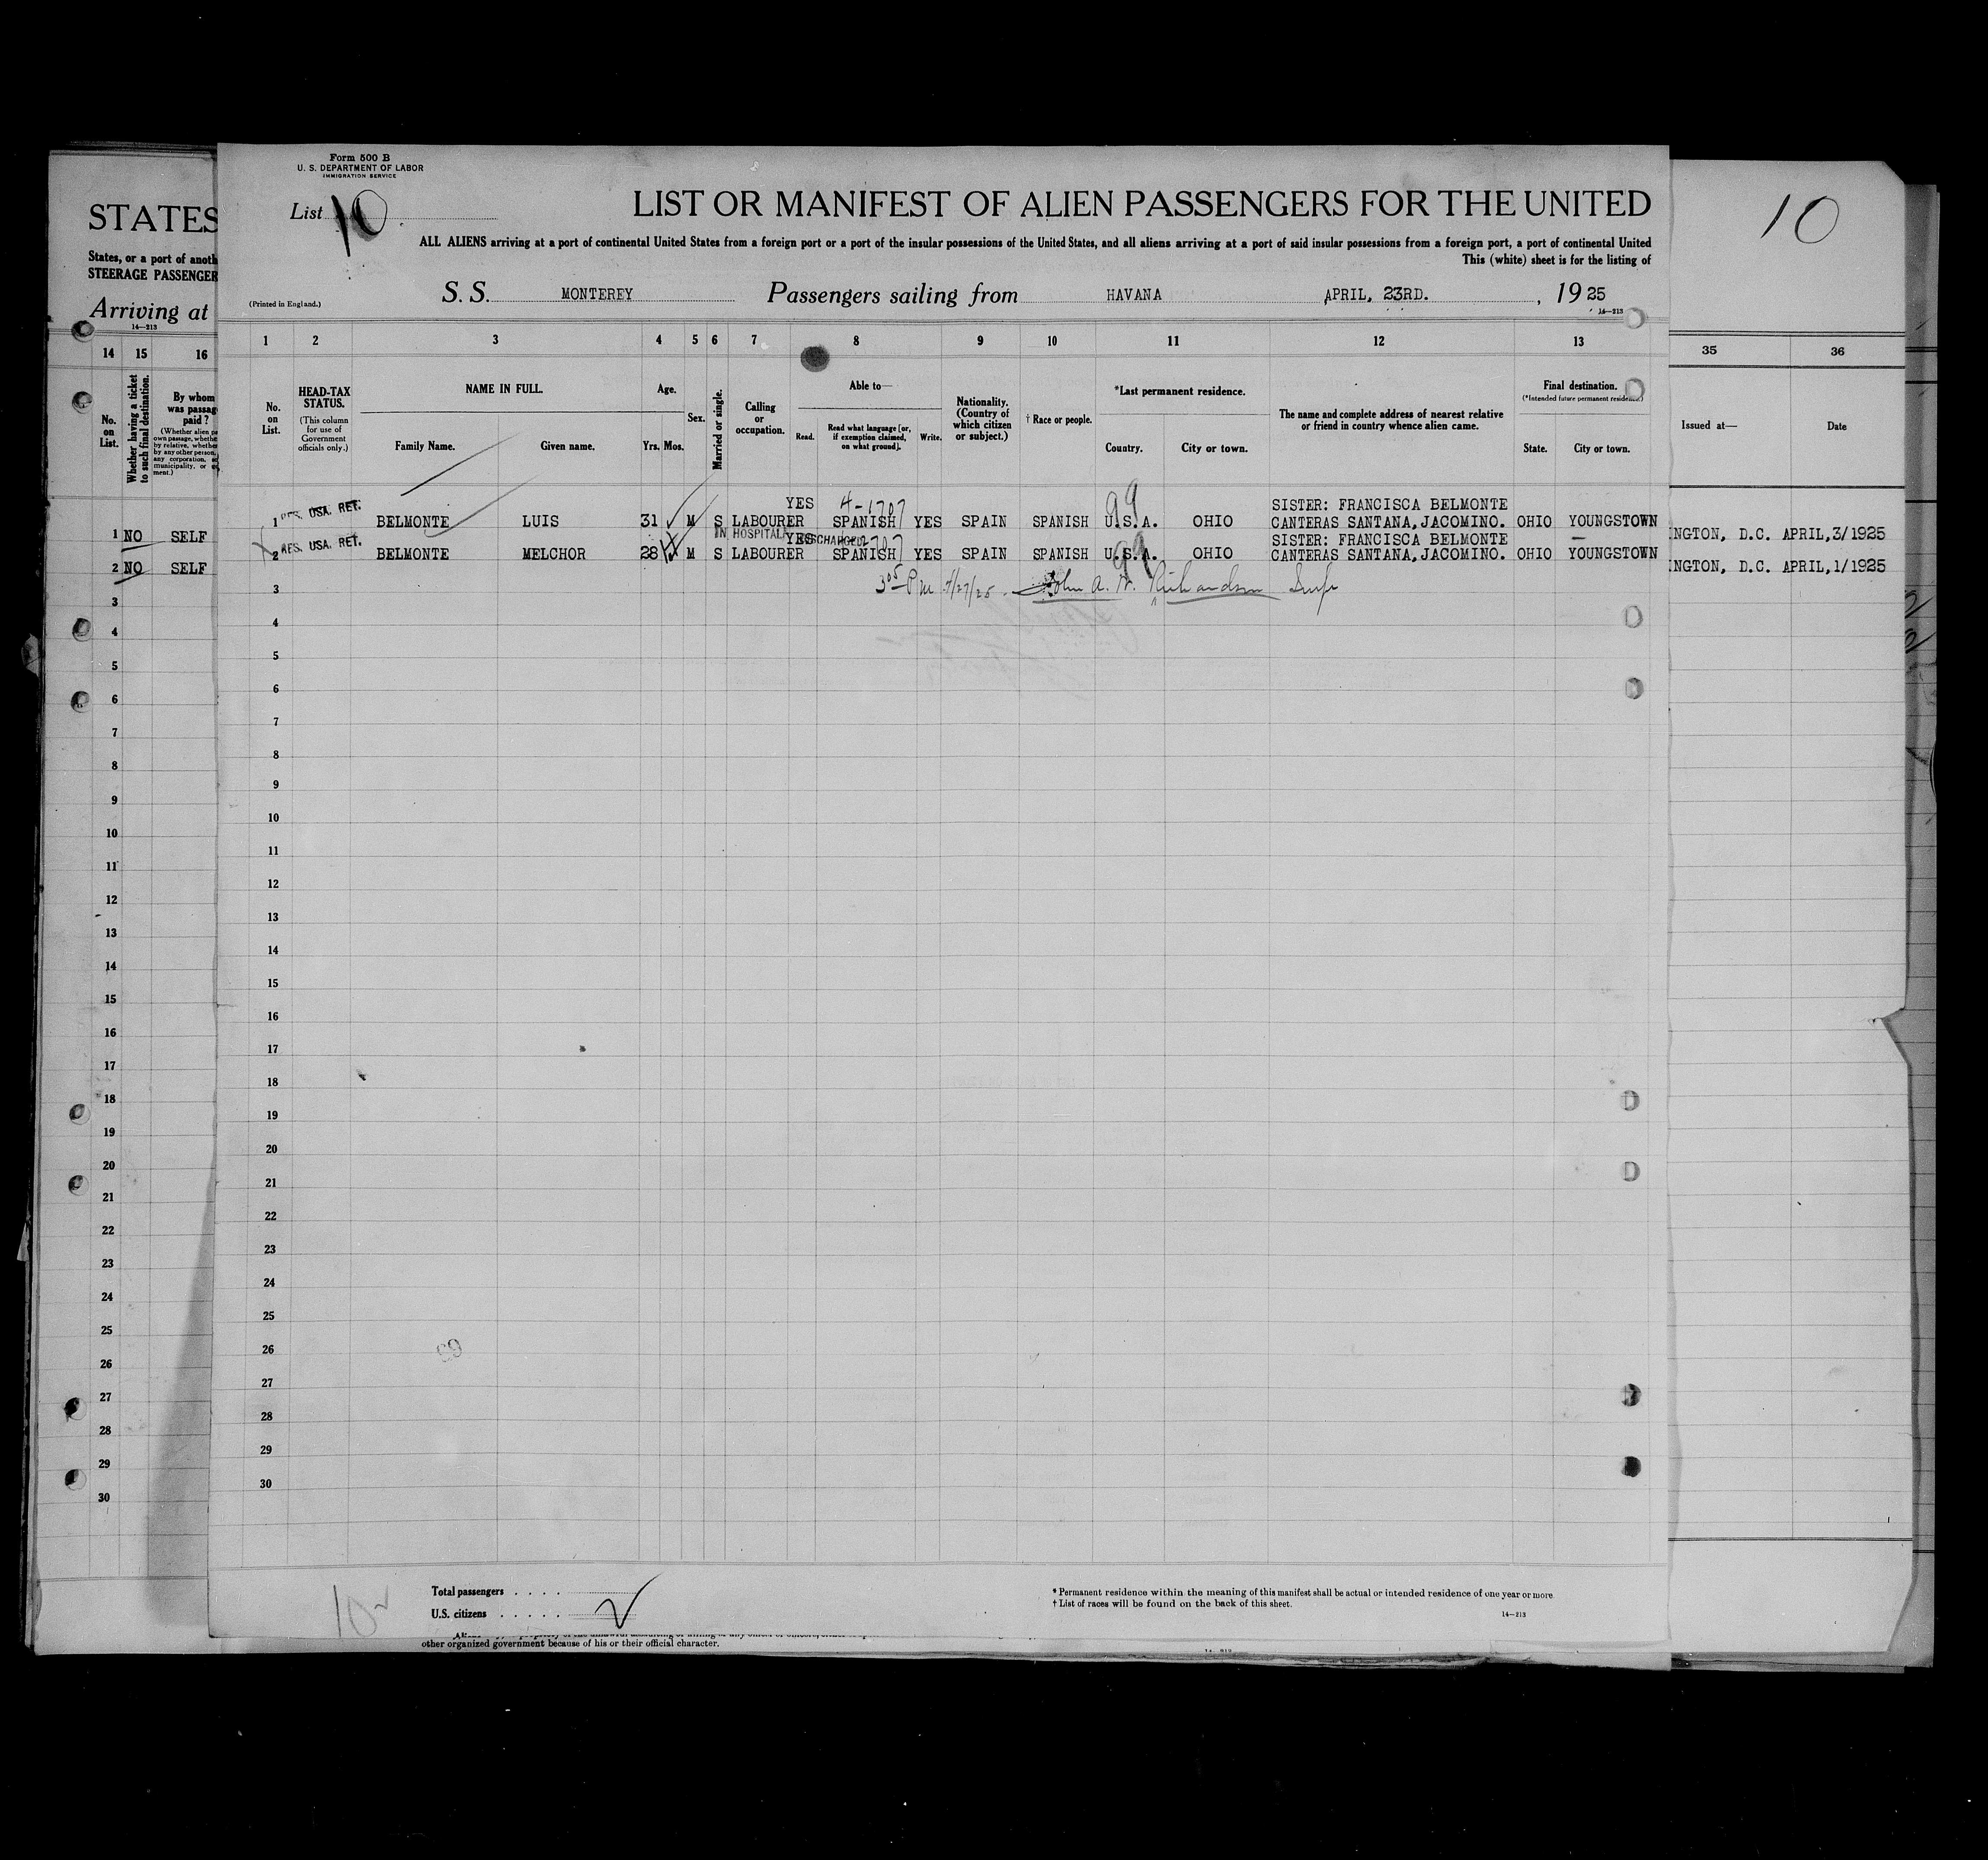 Form 500 B
U. S. DEPARTMENT OF LABOR
IMMIGRATION SERVICE
List 10
LIST OR MANIFEST OF ALIEN PASSENGERS FOR THE UNITED
ALL ALIENS arriving at a port of continental United States from a foreign port or a port of the insular possessions of the United States, and all aliens arriving at a port of said insular possessions from a foreign port, a port of continental United
This (white) sheet is for the listing of
(Printed in England.)
S. S. MONTEREY Passengers sailing from HAVANA APRIL, 23RD. , 19 25
14—213
STATES
States, or a port of anoth
STEERAGE PASSENGER
Arriving at
14—213
10
14 15 16
1 2 3 4 5 6 7 8 9 10 11 12 13
35 36
No. on List.
Whether having a ticket to such final destination.
By whom was passag paid ?
No. on List.
HEAD-TAX STATUS.
(This column for use of Government officials only.)
NAME IN FULL.
Family Name. Given name.
Age.
Yrs. Mos.
Sex.
Married or single.
Calling or occupation.
Able to—
Read. Read what language [or, if exemption claimed, on what ground]. Write.
Nationality. (Country of which citizen or subject.)
† Race or people.
*Last permanent residence.
Country. City or town.
The name and complete address of nearest relative or friend in country whence alien came.
Final destination.
(*Intended future permanent residence.)
State. City or town.
Issued at— Date
YES 4-1707 99 SISTER: FRANCISCA BELMONTE
1 RES. USA. RET. BELMONTE LUIS 31 M S LABOURER SPANISH YES SPAIN SPANISH U.S.A. OHIO CANTERAS SANTANA, JACOMINO. OHIO YOUNGSTOWN
1 NO SELF
INGTON, D.C. APRIL,3/1925
IN HOSPITAL YES DISCHARGED SISTER: FRANCISCA BELMONTE —
2 RES. USA. RET. BELMONTE MELCHOR 28 M S LABOURER SPANISH YES SPAIN SPANISH U.S.A. 99 OHIO CANTERAS SANTANA, JACOMINO. OHIO YOUNGSTOWN
2 NO SELF
INGTON, D.C. APRIL,1/1925
3 05 P m 4/27/25 - John A. W. Richardson
3
4
5
6
7
8
9
10
11
12
13
14
15
16
17
18
19
20
21
22
23
24
25
26
27
28
29
30
3
4
5
6
7
8
9
10
11
12
13
14
15
16
17
18
19
20
21
22
23
24
25
26
27
28
29
30
Total passengers . . . .
U.S. citizens . . . . .
* Permanent residence within the meaning of this manifest shall be actual or intended residence of one year or more.
† List of races will be found on the back of this sheet.
14—213
other organized government because of his or their official character.